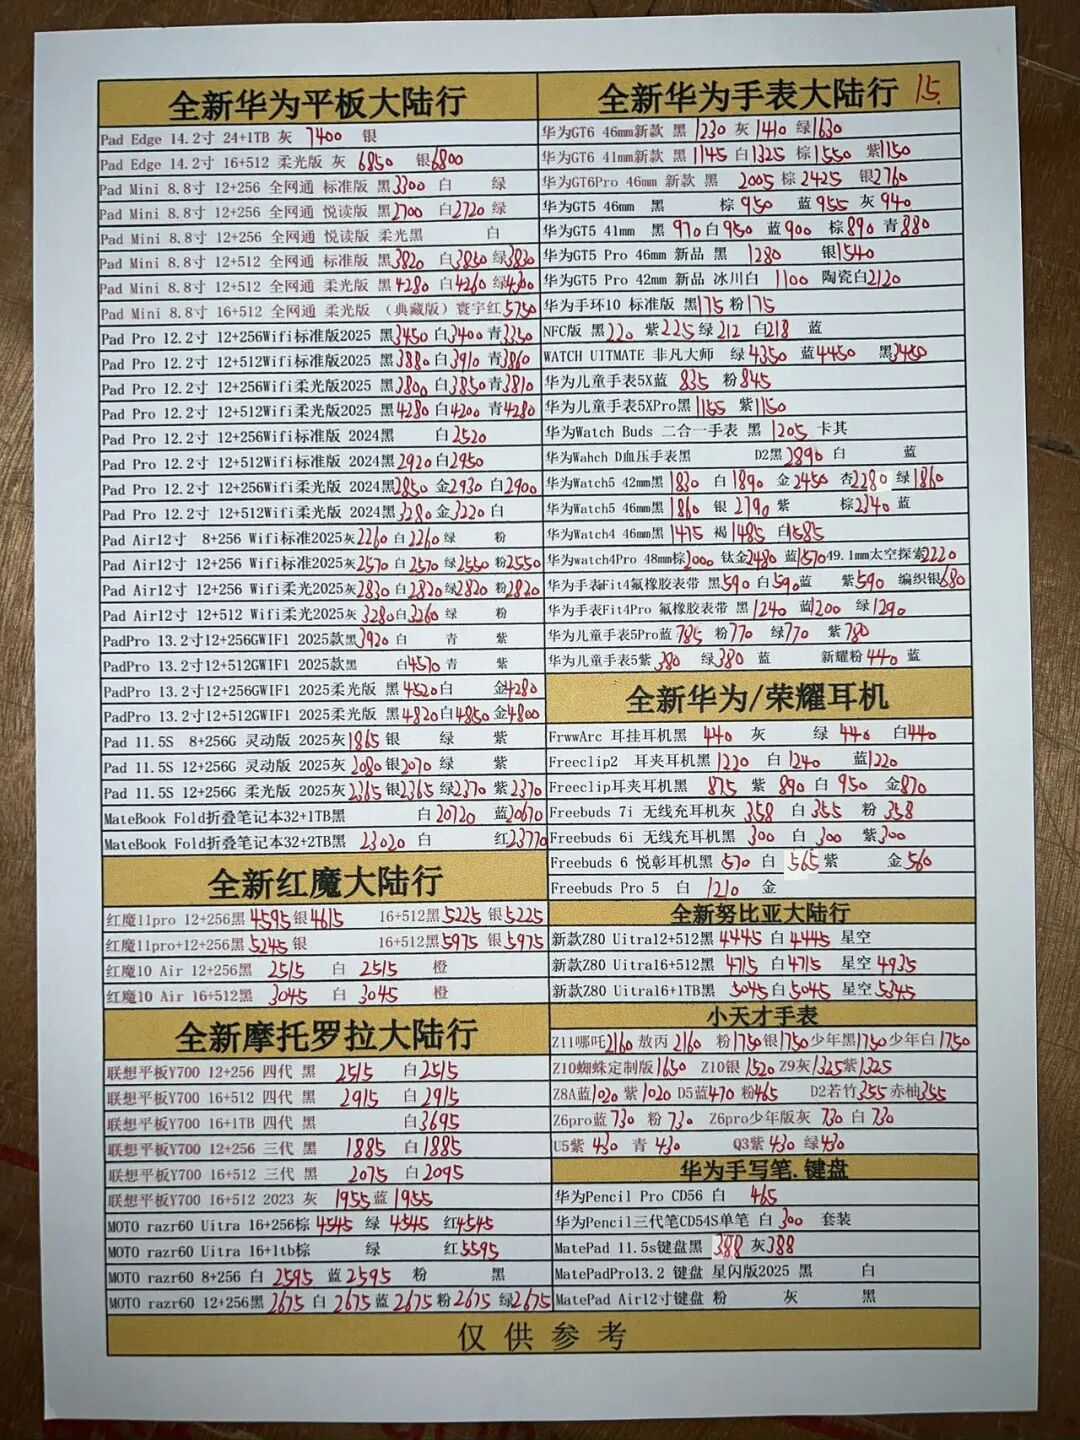 全新华为平板大陆行
Pad Edge 14.2寸 24+1TB 灰 7400 银
Pad Edge 14.2寸 16+512 柔光版 灰 6850 银6800
Pad Mini 8.8寸 12+256 全网通 标准版 黑3300 白 绿
Pad Mini 8.8寸 12+256 全网通 悦读版 黑2700 白2720 绿
Pad Mini 8.8寸 12+256 全网通 悦读版 柔光黑 白
Pad Mini 8.8寸 12+512 全网通 标准版 黑3820 白3850 绿3830
Pad Mini 8.8寸 12+512 全网通 柔光版 黑4280 白4260 绿4300
Pad Mini 8.8寸 16+512 全网通 柔光版 （典藏版）寰宇红5750
Pad Pro 12.2寸 12+256Wifi标准版2025 黑3450 白3400 青3350
Pad Pro 12.2寸 12+512Wifi标准版2025 黑3880 白3910 青3860
Pad Pro 12.2寸 12+256Wifi柔光版2025 黑3800 白3850 青3810
Pad Pro 12.2寸 12+512Wifi柔光版2025 黑4280 白4200 青4280
Pad Pro 12.2寸 12+256Wifi标准版 2024黑 白2520
Pad Pro 12.2寸 12+512Wifi标准版 2024黑2920 白2950
Pad Pro 12.2寸 12+256Wifi柔光版 2024黑2850 金2930 白2900
Pad Pro 12.2寸 12+512Wifi柔光版 2024黑3280 金3220 白
Pad Air12寸 8+256 Wifi标准2025灰2260 白2260 绿 粉
Pad Air12寸 12+256 Wifi标准2025灰2570 白2570 绿2550 粉2550
Pad Air12寸 12+256 Wifi柔光2025灰2830 白2820 绿2820 粉2820
Pad Air12寸 12+512 Wifi柔光2025灰3280 白3260 绿 粉
PadPro 13.2寸12+256GWIF1 2025款黑3920 白 青 紫
PadPro 13.2寸12+512GWIF1 2025款黑 白4570 青 紫
PadPro 13.2寸12+256GWIF1 2025柔光版 黑4520 白 金4280
PadPro 13.2寸12+512GWIF1 2025柔光版 黑4820 白4850 金4800
Pad 11.5S 8+256G 灵动版 2025灰1865 银 绿 紫
Pad 11.5S 12+256G 灵动版 2025灰2080 银2070 绿 紫
Pad 11.5S 12+256G 柔光版 2025灰2365 银2365 绿2370 紫2370
MateBook Fold折叠笔记本32+1TB黑 白20720 蓝20670
MateBook Fold折叠笔记本32+2TB黑 23020 白 红23770
全新红魔大陆行
红魔11pro 12+256黑4595 银4615 16+512黑5225 银5225
红魔11pro+12+256黑5245 银 16+512黑5975 银5975
红魔10 Air 12+256黑 2515 白 2515 橙
红魔10 Air 16+512黑 3045 白 3045 橙
全新摩托罗拉大陆行
联想平板Y700 12+256 四代 黑 2515 白2515
联想平板Y700 16+512 四代 黑 2915 白 2915
联想平板Y700 16+1TB 四代 黑 白3695
联想平板Y700 12+256 三代 黑 1885 白1885
联想平板Y700 16+512 三代 黑 2075 白2095
联想平板Y700 16+512 2023 灰 1955 蓝 1955
MOTO razr60 Uitra 16+256棕 4545 绿 4545 红4545
MOTO razr60 Uitra 16+1tb棕 绿 红5595
MOTO razr60 8+256 白 2595 蓝2595 粉 黑
MOTO razr60 12+256黑 2675 白 2675 蓝 2675 粉2675 绿2675
全新华为手表大陆行 15.
华为GT6 46mm新款 黑 1230 灰 1410 绿1630
华为GT6 41mm新款 黑 1145 白1325 棕1550 紫1150
华为GT6Pro 46mm 新款 黑 2005 棕 2425 银2760
华为GT5 46mm 黑 棕 950 蓝 955 灰 940
华为GT5 41mm 黑 970 白 950 蓝 900 棕 890 青 880
华为GT5 Pro 46mm 新品 黑 1280 银1540
华为GT5 Pro 42mm 新品 冰川白 1100 陶瓷白2120
华为手环10 标准版 黑175 粉175
NFC版 黑220 紫225 绿 212 白218 蓝
WATCH UITMATE 非凡大师 绿 4350 蓝4450 黑3450
华为儿童手表5X蓝 835 粉845
华为儿童手表5XPro黑1155 紫1150
华为Watch Buds 二合一手表 黑 1205 卡其
华为Wahch D血压手表黑 D2黑2890 白 蓝
华为Watch5 42mm黑 1830 白 1890 金 2450 杏2280 绿1860
华为Watch5 46mm黑 1860 银 2790 紫 棕2340 蓝
华为Watch4 46mm黑 1475 褐1485 白1585
华为watch4Pro 48mm棕2000 钛金2480 蓝1570 49.1mm太空探索2220
华为手表Fit4氟橡胶表带 黑590 白590 蓝 紫590 编织银680
华为手表Fit4Pro 氟橡胶表带 黑 1240 蓝1200 绿1290
华为儿童手表5Pro蓝785 粉770 绿770 紫780
华为儿童手表5紫380 绿380 蓝 新耀粉440 蓝
全新华为/荣耀耳机
FrwwArc 耳挂耳机黑 440 灰 绿 440 白440
Freeclip2 耳夹耳机黑1220 白 1240 蓝1220
Freeclip耳夹耳机黑 875 紫 890 白 950 金870
Freebuds 7i 无线充耳机灰 358 白 355 粉 358
Freebuds 6i 无线充耳机黑 300 白 300 紫300
Freebuds 6 悦彰耳机黑 570 白 565 紫 金 560
Freebuds Pro 5 白 1210 金
全新努比亚大陆行
新款Z80 Uitra12+512黑 4445 白 4445 星空
新款Z80 Uitra16+512黑 4715 白4715 星空 4935
新款Z80 Uitra16+1TB黑 5045 白5045 星空 5345
小天才手表
Z11哪吒2160 敖丙 2160 粉1750 银1750 少年黑1750 少年白 1750
Z10蜘蛛定制版1650 Z10银 1520 Z9灰1325 紫1325
Z8A蓝1020 紫 1020 D5蓝470 粉465 D2若竹355 赤柚355
Z6pro蓝 730 粉 730 Z6pro少年版灰 730 白 730
U5紫 430 青 430 Q3紫 430 绿430
华为手写笔.键盘
华为Pencil Pro CD56 白 465
华为Pencil三代笔CD54S单笔 白 300 套装
MatePad 11.5s键盘黑 388 灰388
MatePadPro13.2 键盘 星闪版2025 黑 白
MatePad Air12寸键盘 粉 灰 黑
仅供参考